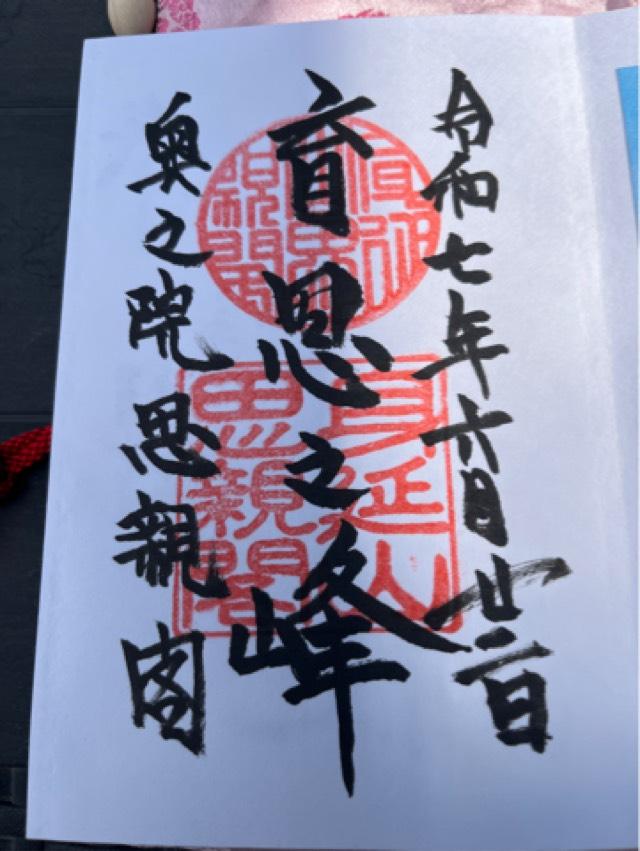 令和七年六月廿二日
育恩之峰
奥之院思親閣
身延山
思親閣